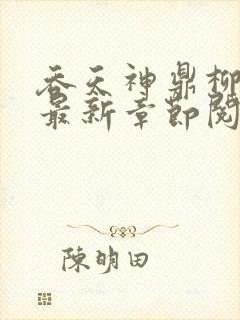 吞天神鼎柳
最新章节阅
陳明田